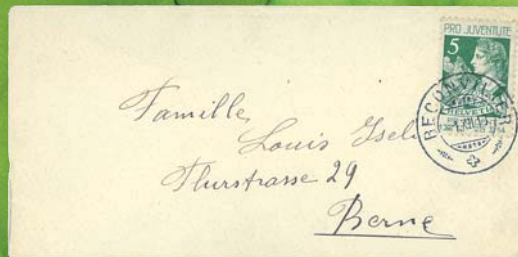 PRO JUVENTUTE
5
HELVETIA
RECONVILIER
Famille
Louis Iseli
Flurstrasse 29
Berne